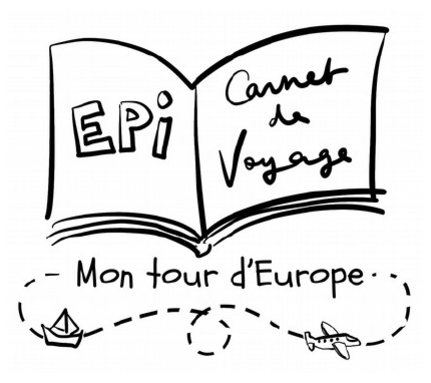 EPi
Carnet
de
Voyage
Mon tour d'Europe